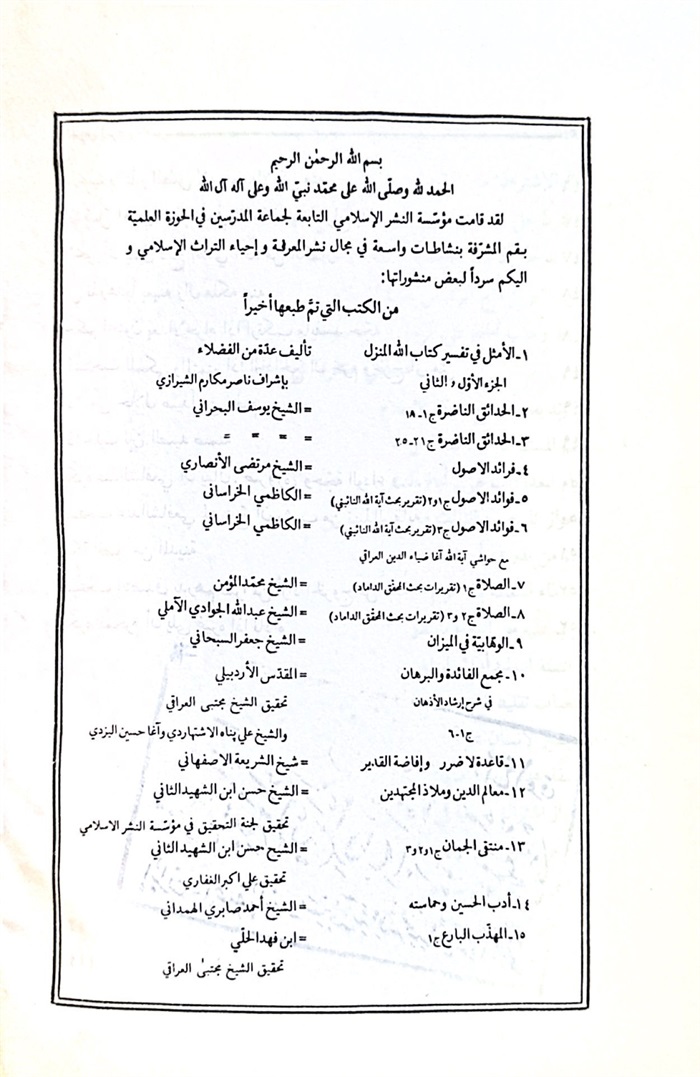 بسم الله الرحمٰن الرحيم
الحمد لله وصلّى الله على محمّد نبيّ الله وعلى آله آل الله
لقد قامت مؤسّسة النشر الإسلامي التابعة لجماعة المدرّسين في الحوزة العلميّة
بقم المشرّفة بنشاطات واسعة في مجال نشر المعرفة و إحياء التراث الإسلامي و
اليكم سرداً لبعض منشوراتها:
من الكتب التي تمّ طبعها أخيراً
١ـ الأمثل في تفسير كتاب الله المنزل تأليف عدّة من الفضلاء
الجزء الأوّل والثاني بإشراف ناصر مكارم الشيرازي
٢ـ الحدائق الناضرة ج١ـ١٨ = الشيخ يوسف البحراني
٣ـ الحدائق الناضرة ج٢١ـ٢٥ = = = =
٤ـ فرائد الاصول = الشيخ مرتضى الأنصاري
٥ـ فوائد الاصول ج١و٢ (تقرير بحث آية الله النائيني) = الكاظمي الخراساني
٦ـ فوائد الاصول ج٣ (تقرير بحث آية الله النائيني) = الكاظمي الخراساني
مع حواشي آية الله آغا ضياء الدين العراقي
٧ـ الصلاة ج١ (تقريرات بحث المحقّق الداماد) = الشيخ محمّد المؤمن
٨ـ الصلاة ج٢ و٣ (تقريرات بحث المحقّق الداماد) = الشيخ عبدالله الجوادي الآملي
٩ـ الوهابيّة في الميزان = الشيخ جعفر السبحاني
١٠ـ مجمع الفائدة والبرهان = المقدّس الأردبيلي
في شرح إرشاد الأذهان تحقيق الشيخ مجتبى العراقي
ج١ـ٦ والشيخ علي پناه الاشتهاردي وآغا حسين اليزدي
١١ـ قاعدة لاضرر وإفاضة القدير = شيخ الشريعة الاصفهاني
١٢ـ معالم الدين وملاذ المجتهدين = الشيخ حسن ابن الشهيد الثاني
تحقيق لجنة التحقيق في مؤسّسة النشر الاسلامي
١٣ـ منتقى الجمان ج١و٢و٣ = الشيخ حسن ابن الشهيد الثاني
تحقيق علي اكبر الغفاري
١٤ـ أدب الحسين وحماسته = الشيخ أحمد صابري الهمداني
١٥ـ المهذّب البارع ج١ = ابن فهد الحلّي
تحقيق الشيخ مجتبىٰ العراقي